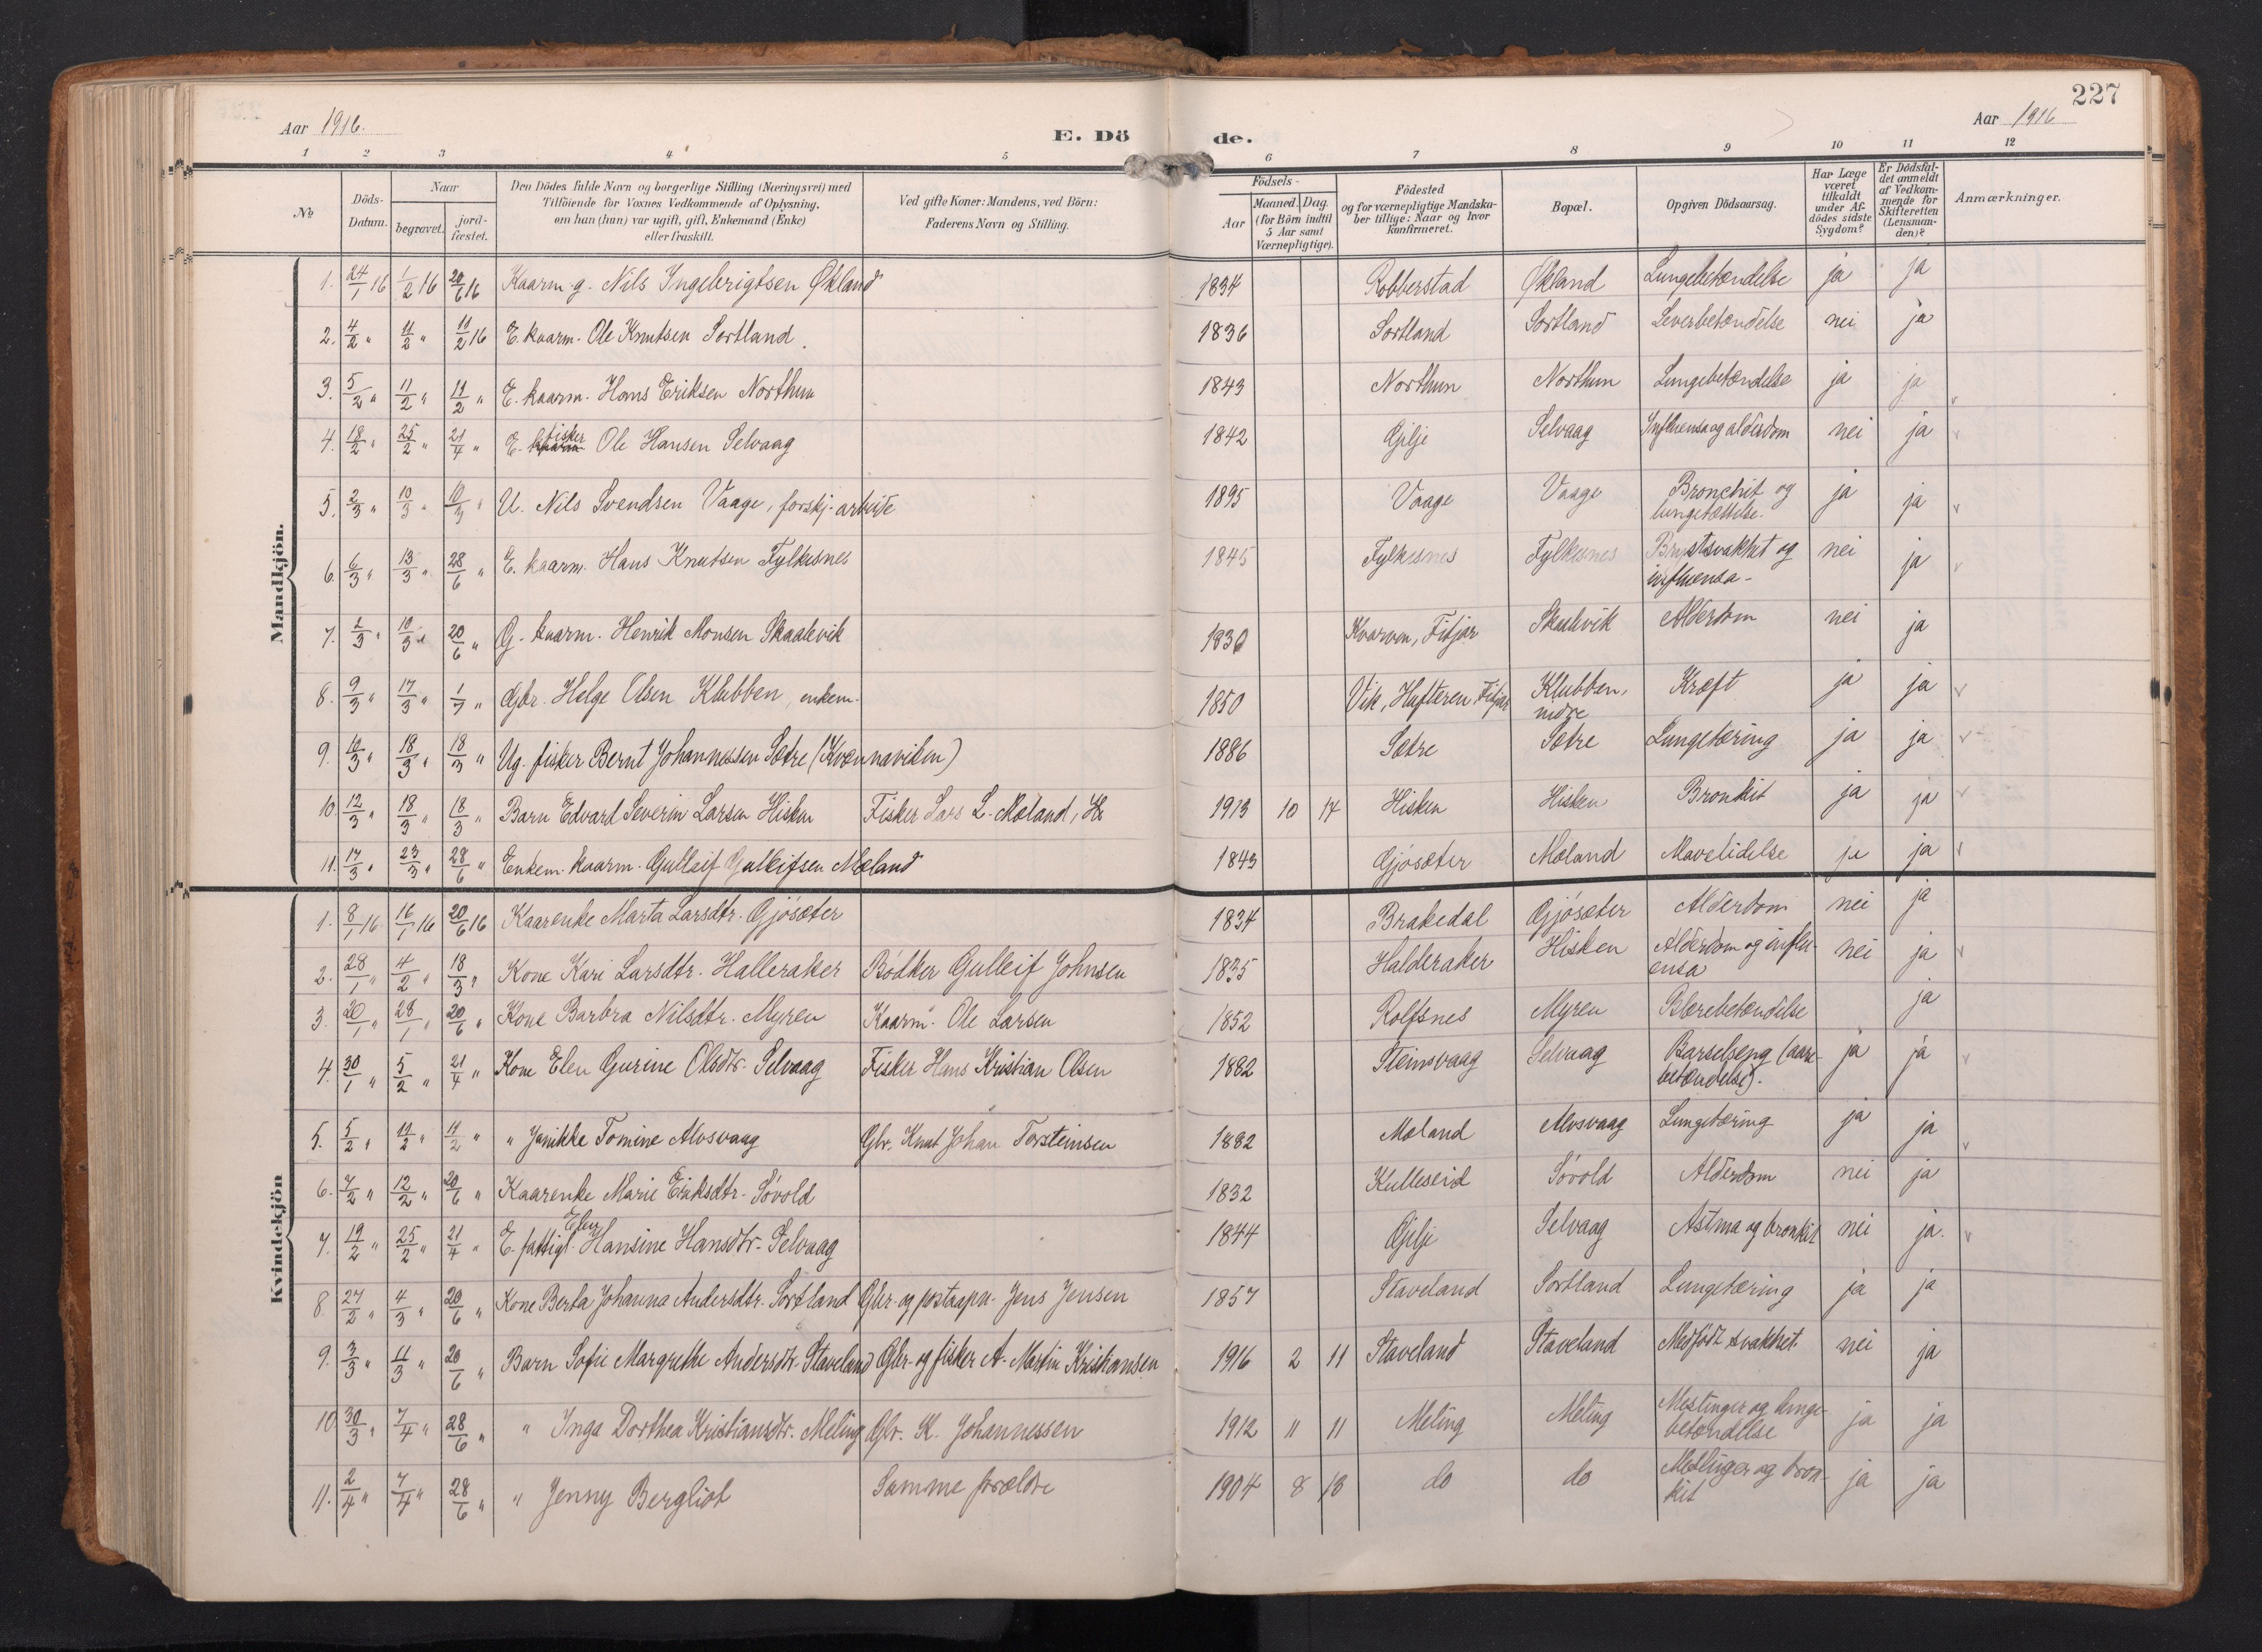 227
Aar 1916. E. Dö de. Aar 1916
1 2 3 4 5 6 7 8 9 10 11 12
No
Döds-Datum.
Naar
begravet.
jord-fæstet.
Den Dödes fulde Navn og borgerlige Stilling (Næringsvei) med
Tilföiende for Voxnes Vedkommende af Oplysning,
om han (hun) var ugift, gift, Enkemand (Enke)
eller fraskilt.
Ved gifte Koner: Mandens, ved Börn:
Faderens Navn og Stilling.
Födsels-
Aar
Maaned. Dag.
(for Börn indtil
5 Aar samt
Værnepligtige).
Födested
og for værnepligtige Mandska-
ber tillige: Naar og hvor
konfirmeret.
Bopæl.
Opgiven Dödsaarsag.
Har Læge
været
tilkaldt
under Af-
dödes sidste
Sygdom?
Er Dödsfal-
det anmeldt
af Vedkom-
mende for
Skifteretten
(Lensman-
den)?
Anmærkninger.
Mandkjön.
1. 24/1 16 1/2 16 20/6 16 Kaarm. g. Nils Ingebrigtsen Økland 1834 Robberstad Økland Lungebetændelse ja ja
2. 4/2 " 11/2 " 11/2 16 E. kaarm. Ole Knutsen Sortland. 1836 Sortland Sortland Leverbetændelse nei ja
3. 5/2 " 11/2 " 11/2 " E. kaarm. Hans Eriksen Northun 1843 Northun Northun Lungebetændelse ja ja
4. 18/2 " 25/2 " 21/4 " E. fisker Ole Hansen Selvaag 1842 Gjilje Selvaag Influensa og alderdom nei ja
5. 2/3 " 10/3 " 10/3 " U. Nils Svendsen Vaage, forskj. arbeide 1895 Vaage Vaage Bronchit og ja ja
lungetættelse.
6. 6/3 " 13/3 " 28/6 " E. kaarm. Hans Knutsen Fylkesnes 1845 Fylkesnes Fylkesnes Brystsvakhet og nei ja
influensa -
7. 2/3 " 10/3 " 20/6 " G. kaarm. Henrik Monsen Skaalevik 1830 Kvarven, Fitjar Skaalevik Alderdom nei ja
8. 9/3 " 17/3 " 1/7 " Gbr. Helge Olsen Klubben, enkem. 1850 Vik, Hufteren, Fitjar Klubben, Kræft ja ja
nidre
9. 10/3 " 18/3 " 18/3 " Ug. fisker Bernt Johannessen Sætre (Kvernaviken) 1886 Sætre Sætre Lungetæring ja ja
10. 12/3 " 18/3 " 18/3 " Barn Edvard Severin Larsen Hisken Fisker Lars L. Mæland, H. 1913 10 17 Hisken Hisken Bronkit ja ja
11. 17/3 " 23/3 " 28/6 " Enkem. kaarm. Gulleif Gulleifsen Mæland 1843 Gjøsæter Mæland Mavelidelse ja ja
Kvindekjön
1. 8/1 16 16/1 16 20/6 16 Kaarenke Marta Larsdtr. Gjøsæter 1834 Brakedal Gjøsæter Alderdom nei ja
2. 28/1 " 4/2 " 18/3 " Kone Kari Larsdtr. Halleraker Bødker Gulleif Johnsen 1835 Halderaker Hisken Alderdom og influ- nei ja
ensa
3. 20/1 " 28/1 " 20/6 " Kone Barbra Nilsdtr. Myren Kaarm. Ole Larsen 1852 Rolfsnes Myren Blærebetændelse ja
4. 30/1 " 5/2 " 21/4 " Kone Elen Gurine Olsdtr. Selvaag Fisker Hans Kristian Olsen 1882 Steinsvaag Selvaag Barselseng (aare- ja ja
betændelse).
5. 5/2 " 14/2 " 14/2 " " Janikke Tomine Alvsvaag Gbr. Knut Johan Torsteinsen 1882 Mæland Alvsvaag Lungetæring ja ja
6. 7/2 " 12/2 " 20/6 " Kaarenke Marie Eriksdtr. Søvold 1832 Kulleseid Søvold Alderdom nei ja
7. 19/2 " 25/2 " 21/4 " E. fattigl. Elen Hansine Hansdtr. Selvaag 1844 Gjilje Selvaag Astma og bronkit nei ja.
8. 27/2 " 4/3 " 20/6 " Kone Berta Johanna Andersdtr. Sortland Gbr. og postaapn. Jens Jensen 1857 Staveland Sortland Lungetæring ja ja
9. 3/3 " 11/3 " 20/6 " Barn Sofie Margrethe Andersdtr. Staveland Gbr. og fisker A. Martin Kristiansen 1916 2 11 Staveland Staveland Medfødt svakhet. nei ja
10. 30/3 " 7/4 " 28/6 " " Inga Dorthea Kristiansdtr. Meling Gbr. K. Johannessen 1912 11 11 Meling Meling Meslinger og lunge- ja ja
betændelse
11. 2/4 " 7/4 " 28/6 " " Jenny Bergliot Samme forældre 1904 8 13 do do Meslinger og bron- ja ja
kit